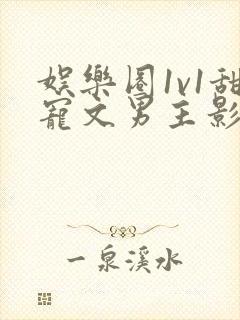 娛樂圈1v1甜
寵文男主影
一泉溪水